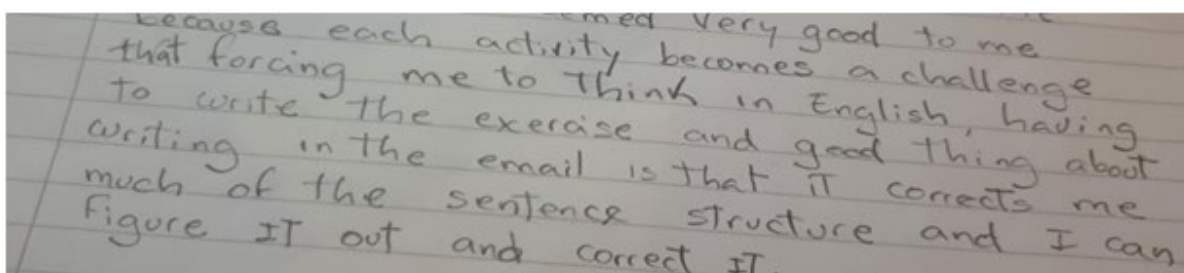 because each activity becomes a challenge
that forcing me to think in English, having
to write the exercise and good thing about
writing in the email is that it corrects me
much of the sentence structure and I can
figure IT out and correct IT.